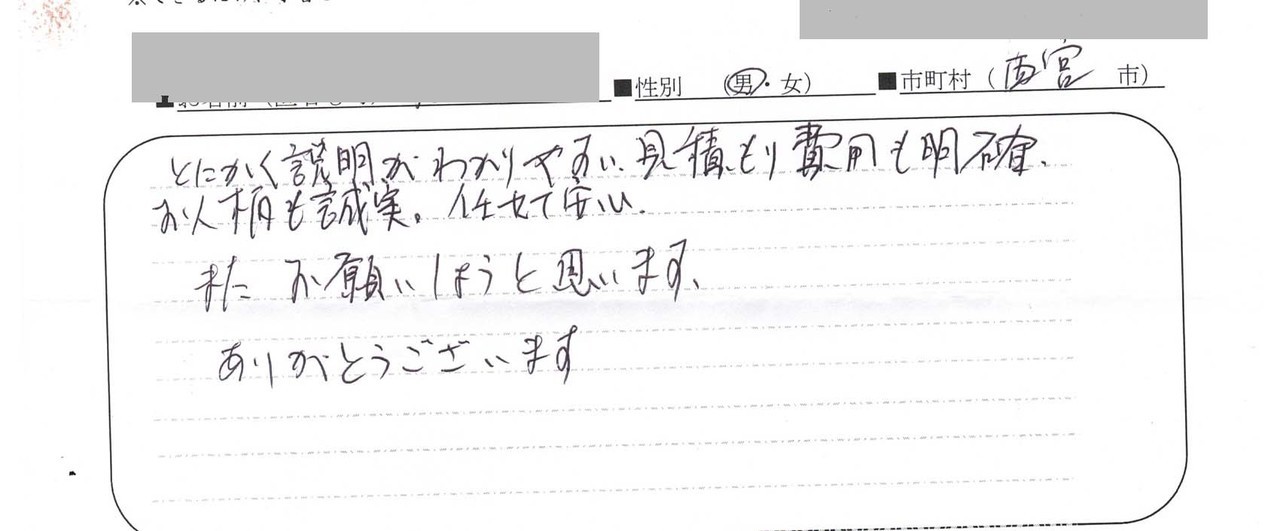 ■性別 (男・女) ■市町村 (西宮 市)
とにかく説明がわかりやすい、見積もり費用も明確、
お人柄も誠実。任せて安心。
またお願いしようと思います、
ありがとうございます